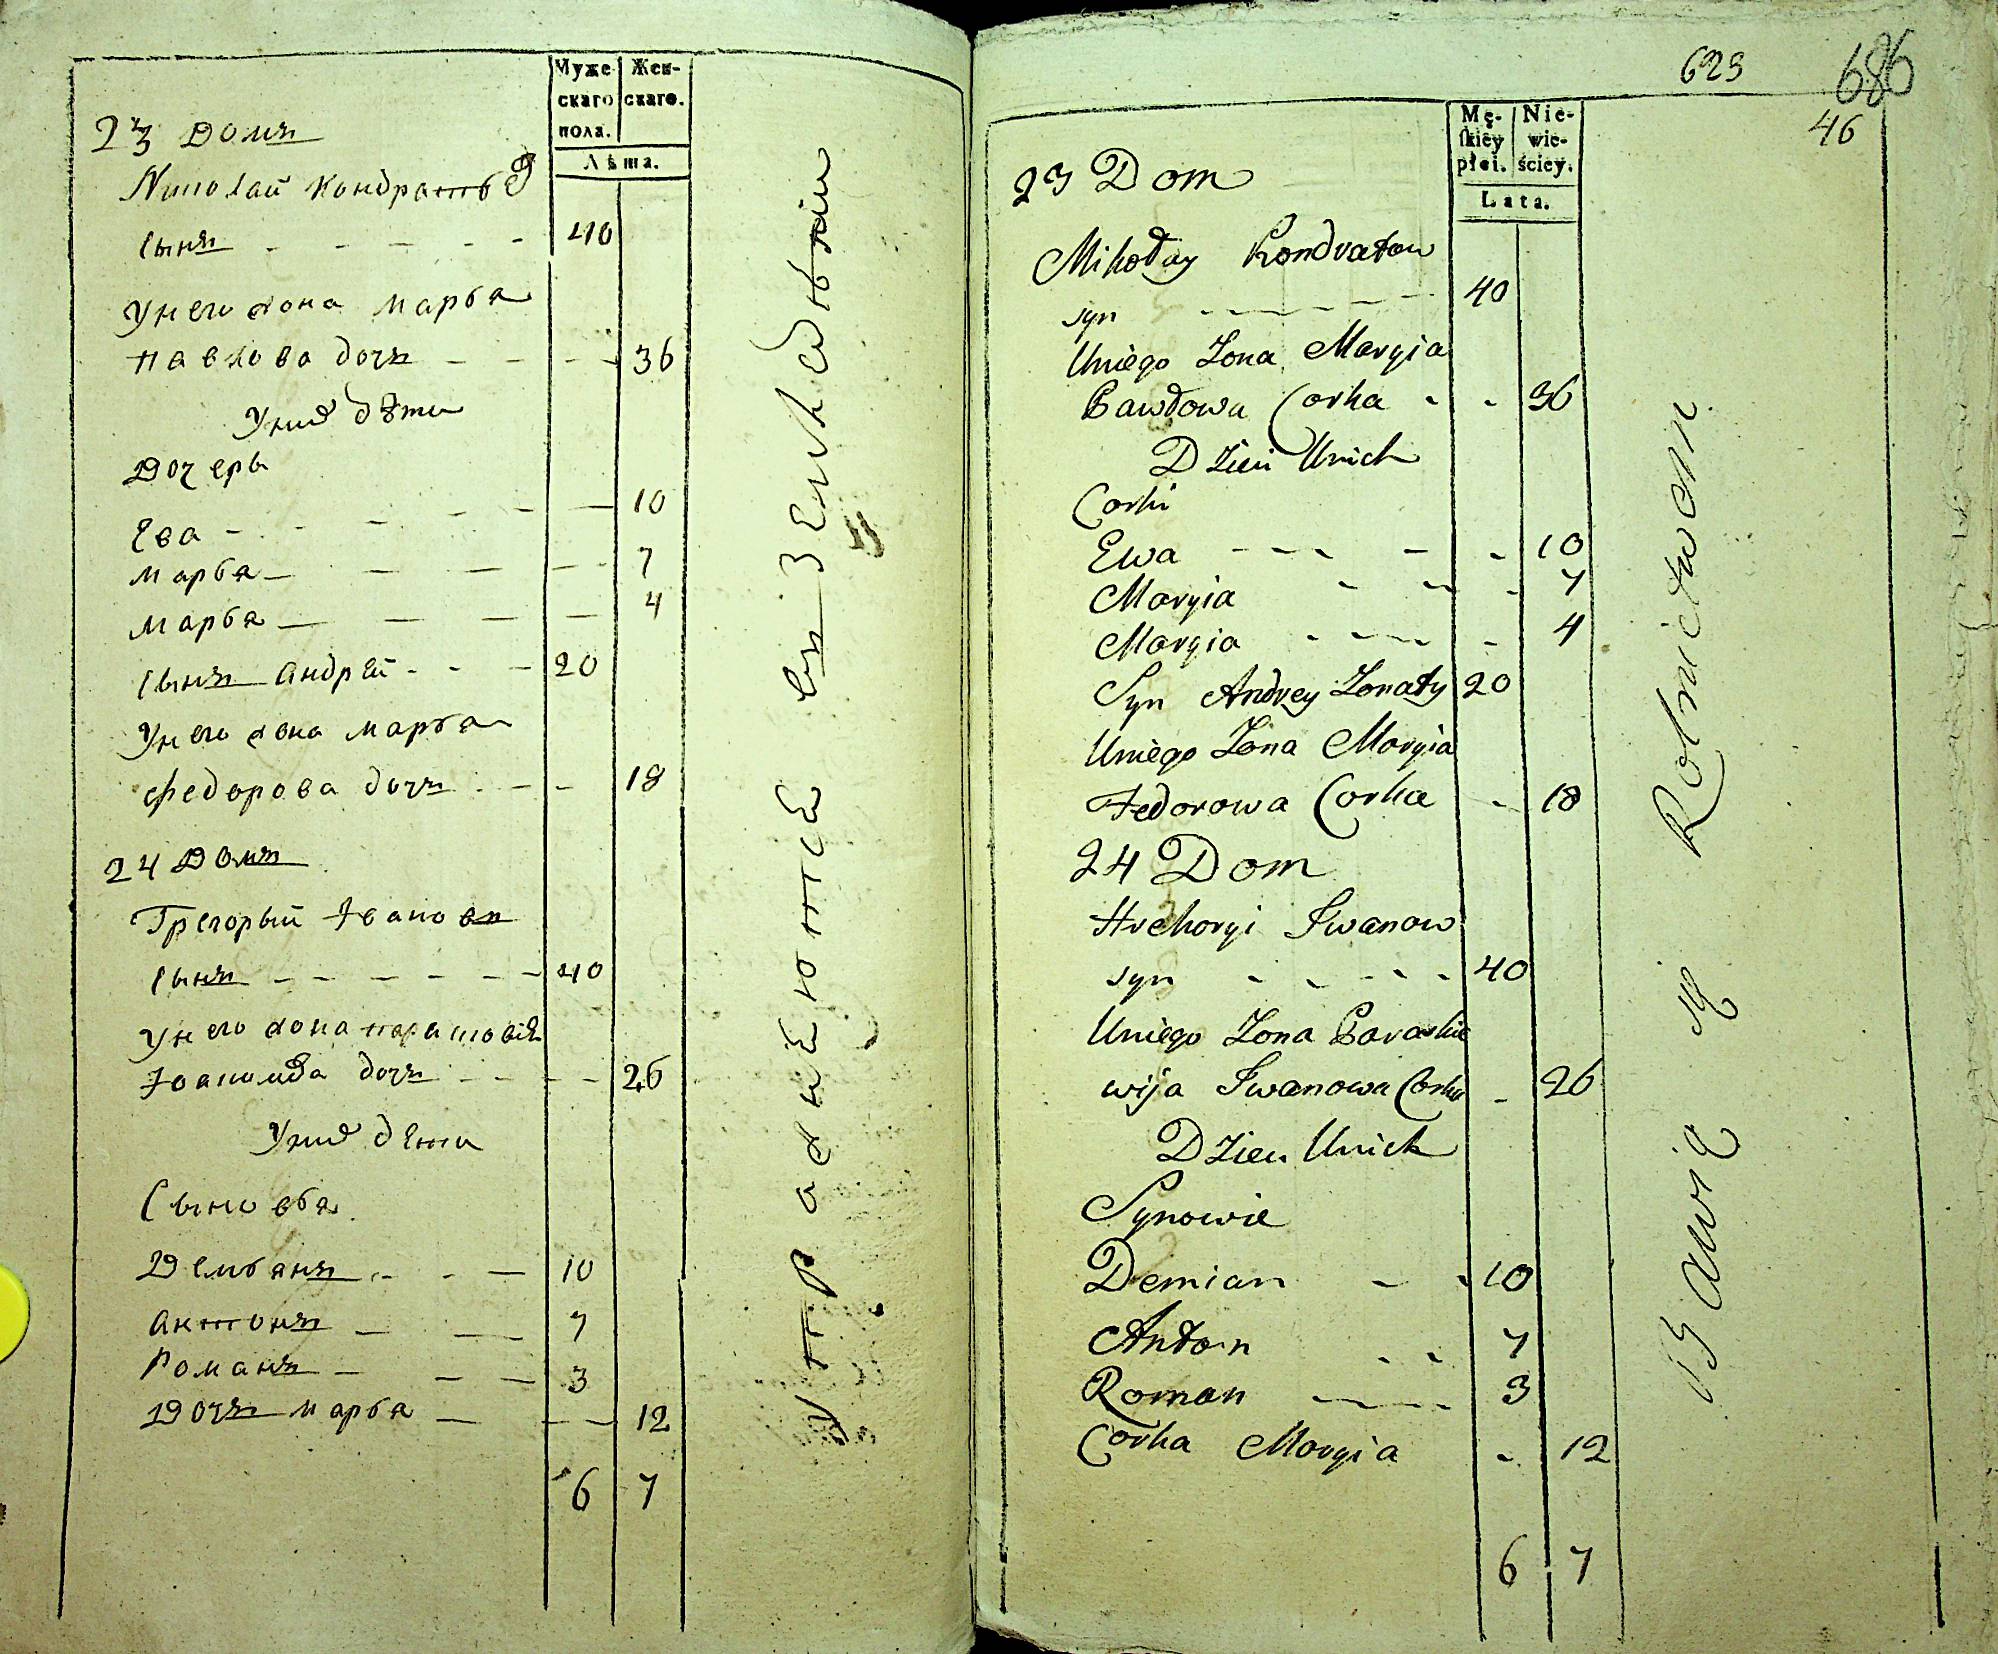 Муже Жен-
скаго скаго.
пола.
Лѣта.
23 Домъ
Николай Кондратов
сынъ - - - - - 40
Унего жона Марья
Павлова дочъ - - - - 36
Уних дѣти
Дочеры
Ева - - - - - 10
Марья - - - - 7
Марья - - - - 4
сынъ Андрей - - - 20
Унего жона Марья
Федорова дочъ - - - 18
24 Домъ
Грегорый Івановъ
сынъ - - - - - - 40
Унего жона Парасковія
Іоанова дочъ - - - - 26
Уних дети
Сыновья
Демьянъ - - - 10
Антонъ - - 7
Романъ - - - 3
Дочъ Марья - - - 12
6 7
Упражнеютсе въ Земледѣліи
623 686
46
Mę- Nie-
skiéy wie-
płci. ściey.
Lata.
23 Dom
Mikołay Kondratow
syn - - - - - - 40
Uniego Zona Maryia
Pawłowa Corka - - 36
Dzieci Unich
Corki
Ewa - - - - - 10
Maryia - - - 7
Maryia - - - - - 4
Syn Andrey Zonaty 20
Uniego Zona Maryia
Fedorowa Corka - 18
24 Dom
Hrehoryi Iwanow
syn - - - - - 40
Uniego Zona Paraskie
wija Iwanowa Corka - 26
Dzieci Unich
Synowie
Demian - - 10
Anton - - 7
Roman - - - - 3
Corka Maryia - 12
6 7
Bawią się Rolnictwem.